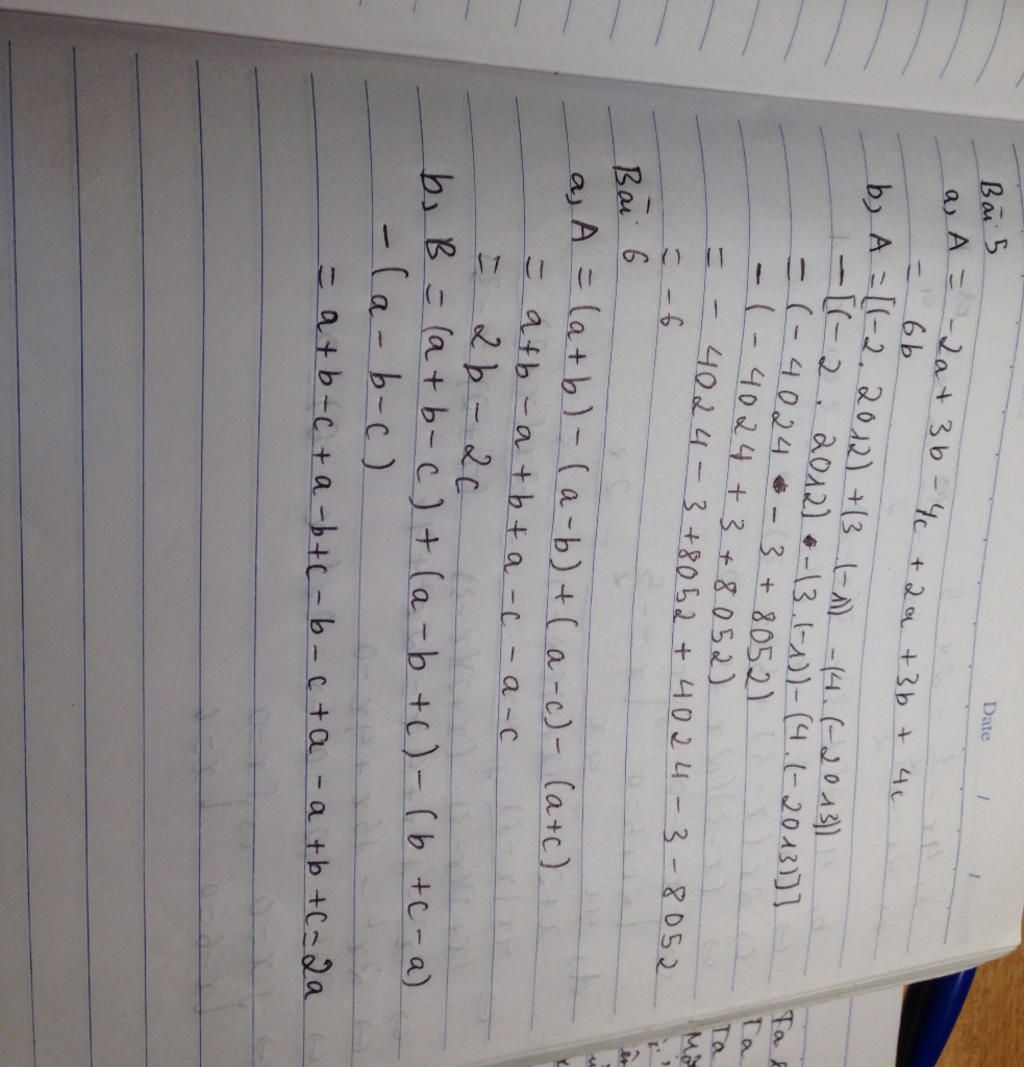 Date / /
Bài 5
a, A = -2a + 3b - 4c + 2a + 3b + 4c
= 6b
b, A = [(-2. 2012) + (3 (-1) - (4. (-2013))
- [(-2. 2012) - (3. (-1)) - (4. (-2013))]
= (- 4024 - 3 + 8052)
- (- 4024 + 3 + 8052)
= - 4024 - 3 + 8052 + 4024 - 3 - 8052
= -6
Bài 6
a, A = (a+b) - (a-b) + (a-c) - (a+c)
= a+b-a+b+a-c-a-c
= 2b - 2c
b, B = (a+b-c) + (a-b+c) - (b+c-a)
- (a-b-c)
= a+b-c+a-b+c-b-c+a-a+b+c=2a
Ta
Ta
Ta